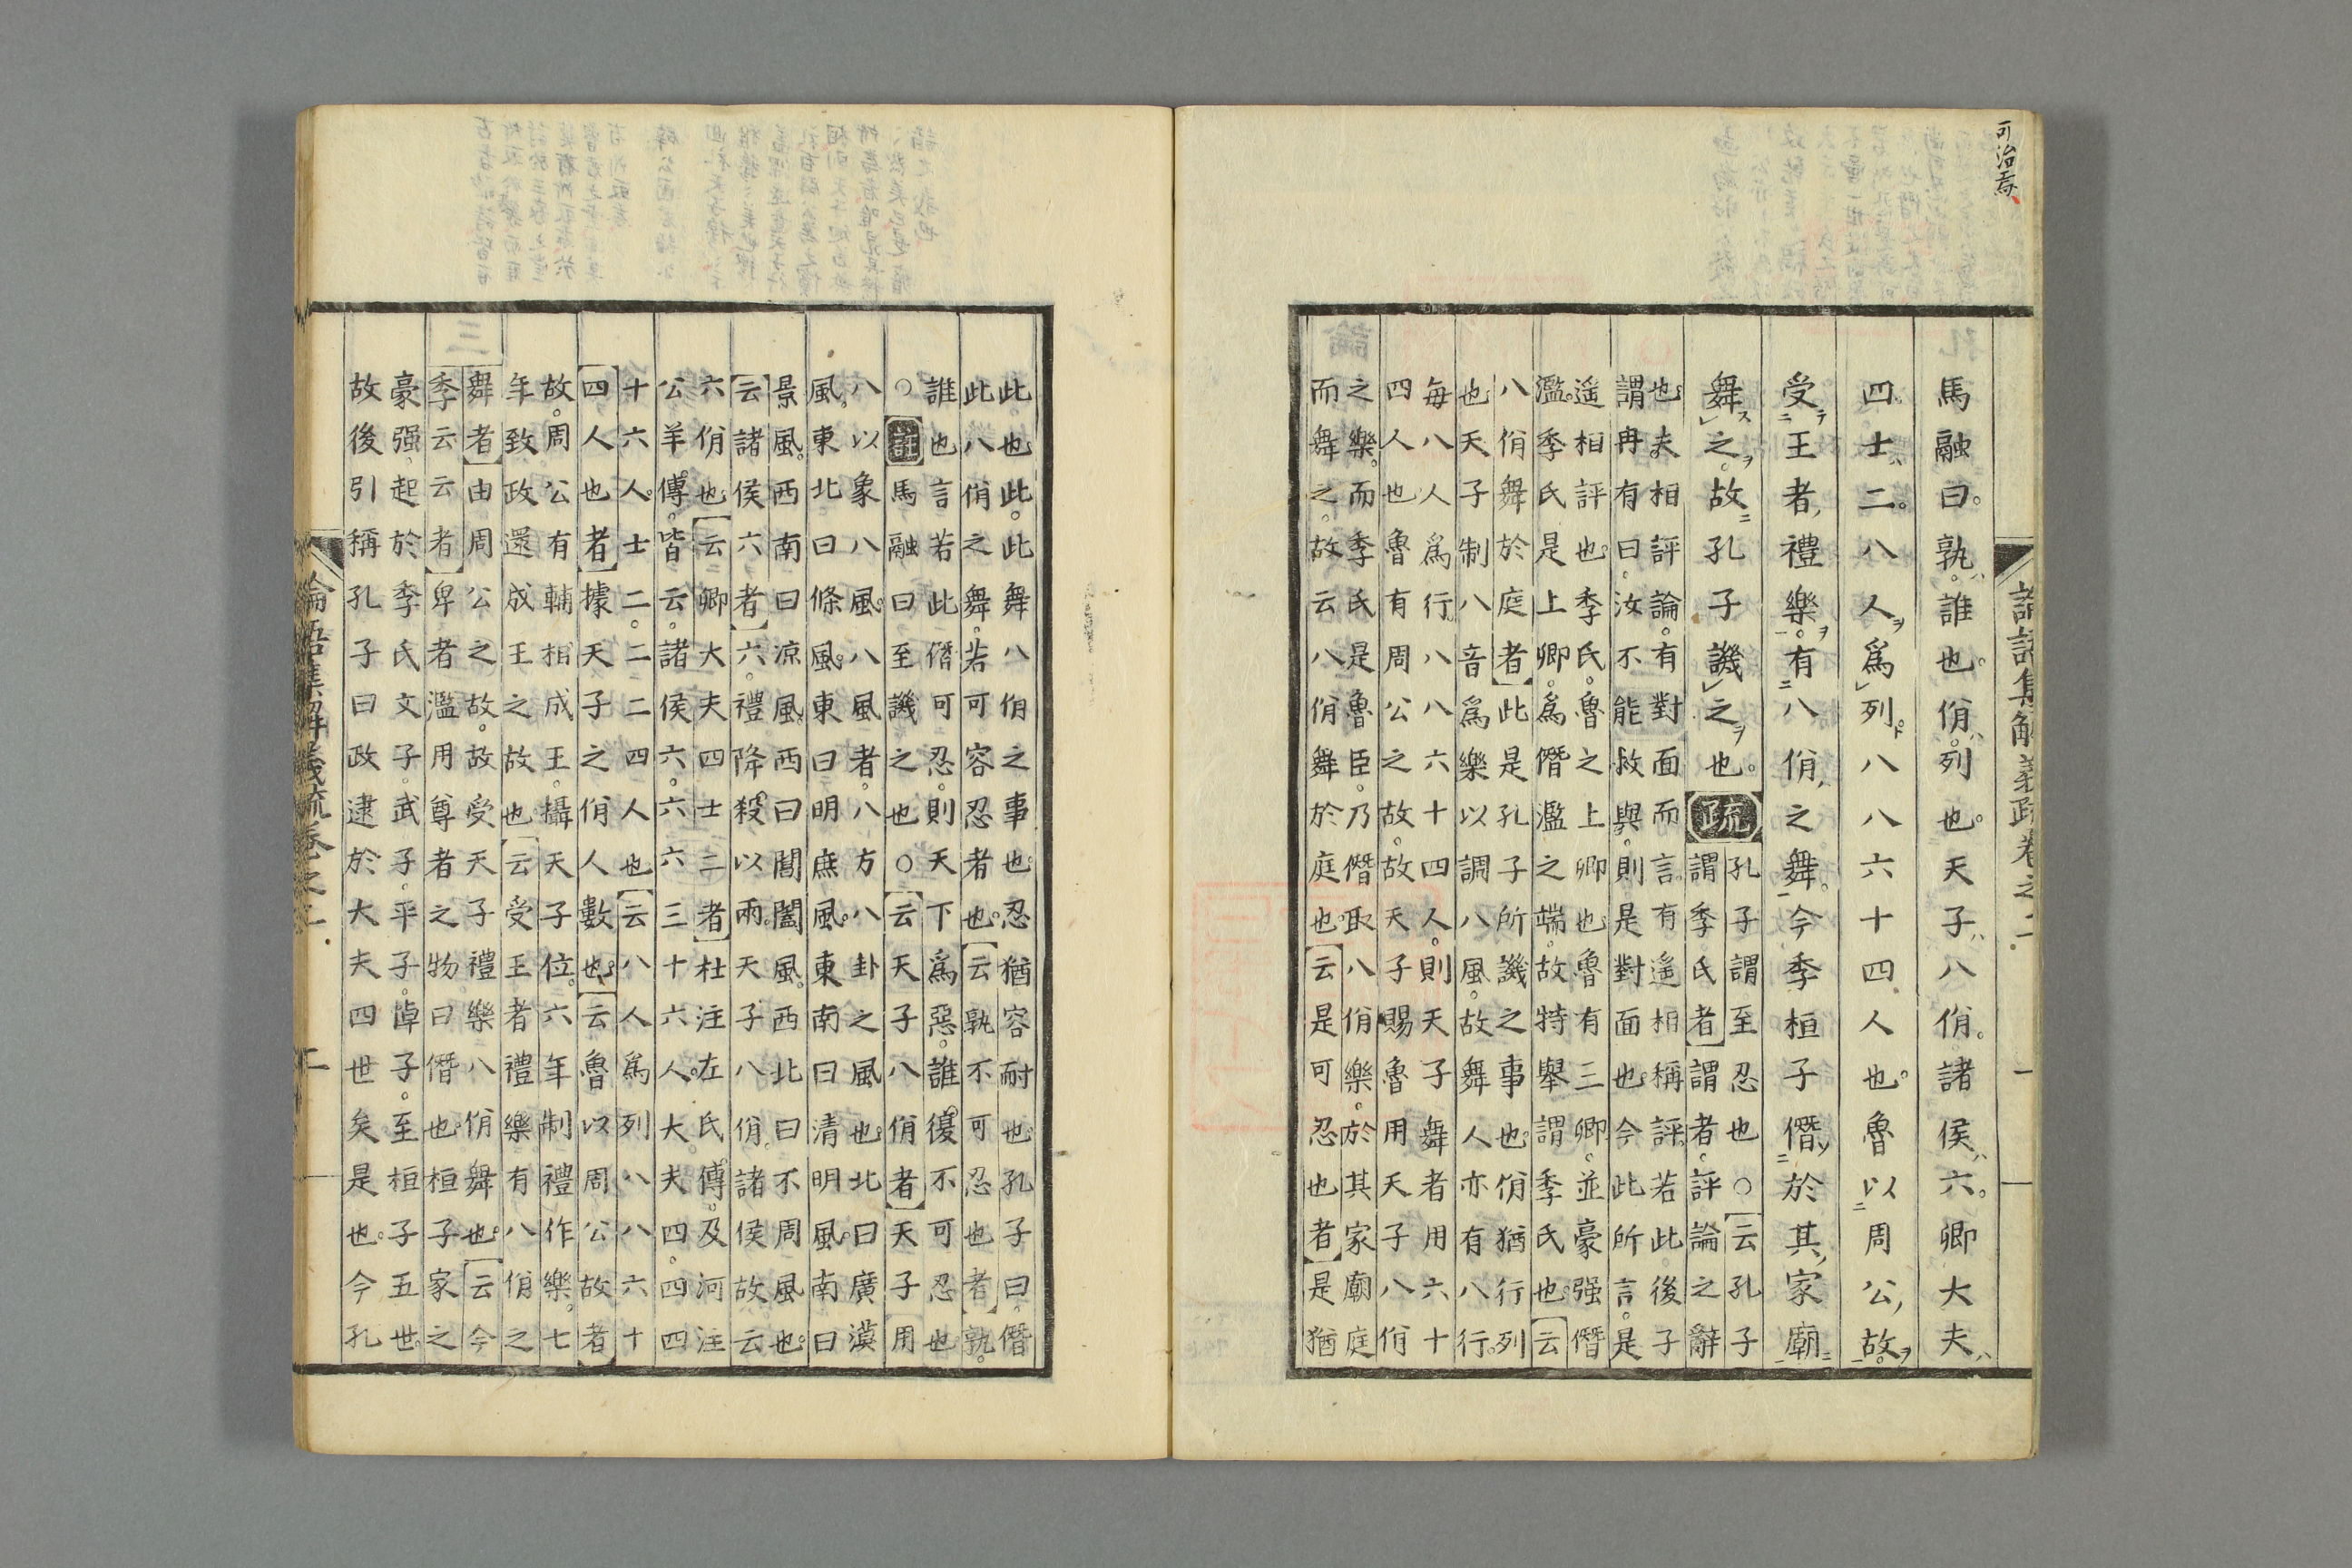 可治焉
論語集解義疏卷之二
一
馬融曰孰誰也佾列也天子八佾諸侯六卿大夫
四士二八人爲列八八六十四人也魯以周公故
受王者禮樂有八佾之舞今季桓子僭於其家廟
舞之故孔子譏之也疏
孔子謂至忍也○云孔子
謂季氏者謂者評論之辭
也夫相評論有對面而言有遙相稱評若此後子
謂冉有曰汝不能救與則是對面也今此所言是
遙相評也季氏魯之上卿也魯有三卿並豪强僭
濫季氏是上卿爲僭濫之端故特舉謂季氏也云
八佾舞於庭者此是孔子所譏之事也佾猶行列
也天子制八音爲樂以調八風故舞人亦有八行
每八人爲行八八六十四人則天子舞者用六十
四人也魯有周公之故故天子賜魯用天子八佾
之樂而季氏是魯臣乃僭取八佾樂於其家廟庭
而舞之故云八佾舞於庭也云是可忍也者是猶
此也此此舞八佾之事也忍猶容耐也孔子曰僭
此八佾之舞若可容忍者也云孰不可忍也者孰
誰也言若此僭可忍則天下爲惡誰復不可忍也
○註馬融曰至譏之也○云天子八佾者天子用
八以象八風八風者八方八卦之風也北曰廣漠
風東北曰條風東曰明庶風東南曰清明風南曰
景風西南曰涼風西曰閶闔風西北曰不周風也
云諸侯六者六禮降殺以兩天子八佾諸侯故云
六佾也云卿大夫四士二者杜注左氏傳及河注
公羊傳皆云諸侯六六六三十六人大夫四四四
十六人士二二二四人也云八人爲列八八六十
四人也者據天子之佾人數也云魯以周公故者
故周公有輔相成王攝天子位六年制禮作樂七
年致政還成王之故也云受王者禮樂有八佾之
舞者由周公之故故受天子禮樂八佾舞也云今
季云云者卑者濫用尊者之物曰僭也桓子家之
豪强起於季氏文子武子平子悼子至桓子五世
故後引稱孔子曰政逮於大夫四世矣是也今孔
論語集解義疏卷之二
二